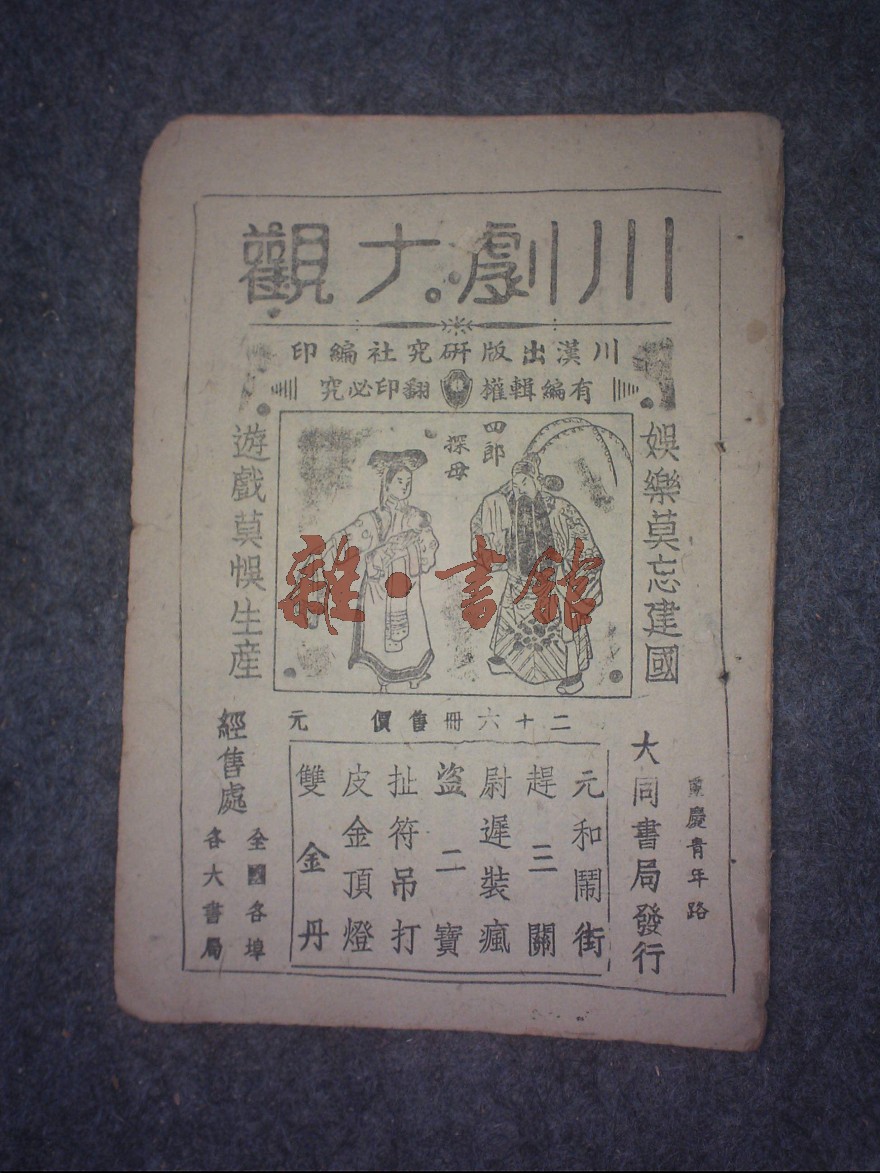 川劇大觀
川漢出版研究社編印
有編輯權 翻印必究
娛樂莫忘建國
四郎
探母
遊戲莫悞生産
二十六冊售價 元
重慶青年路
大同書局發行
元和鬧街
趕三關
尉遲裝瘋
盜二寶
扯符吊打
皮金頂燈
雙金丹
經售處
全國各埠
各大書局
雜·書館